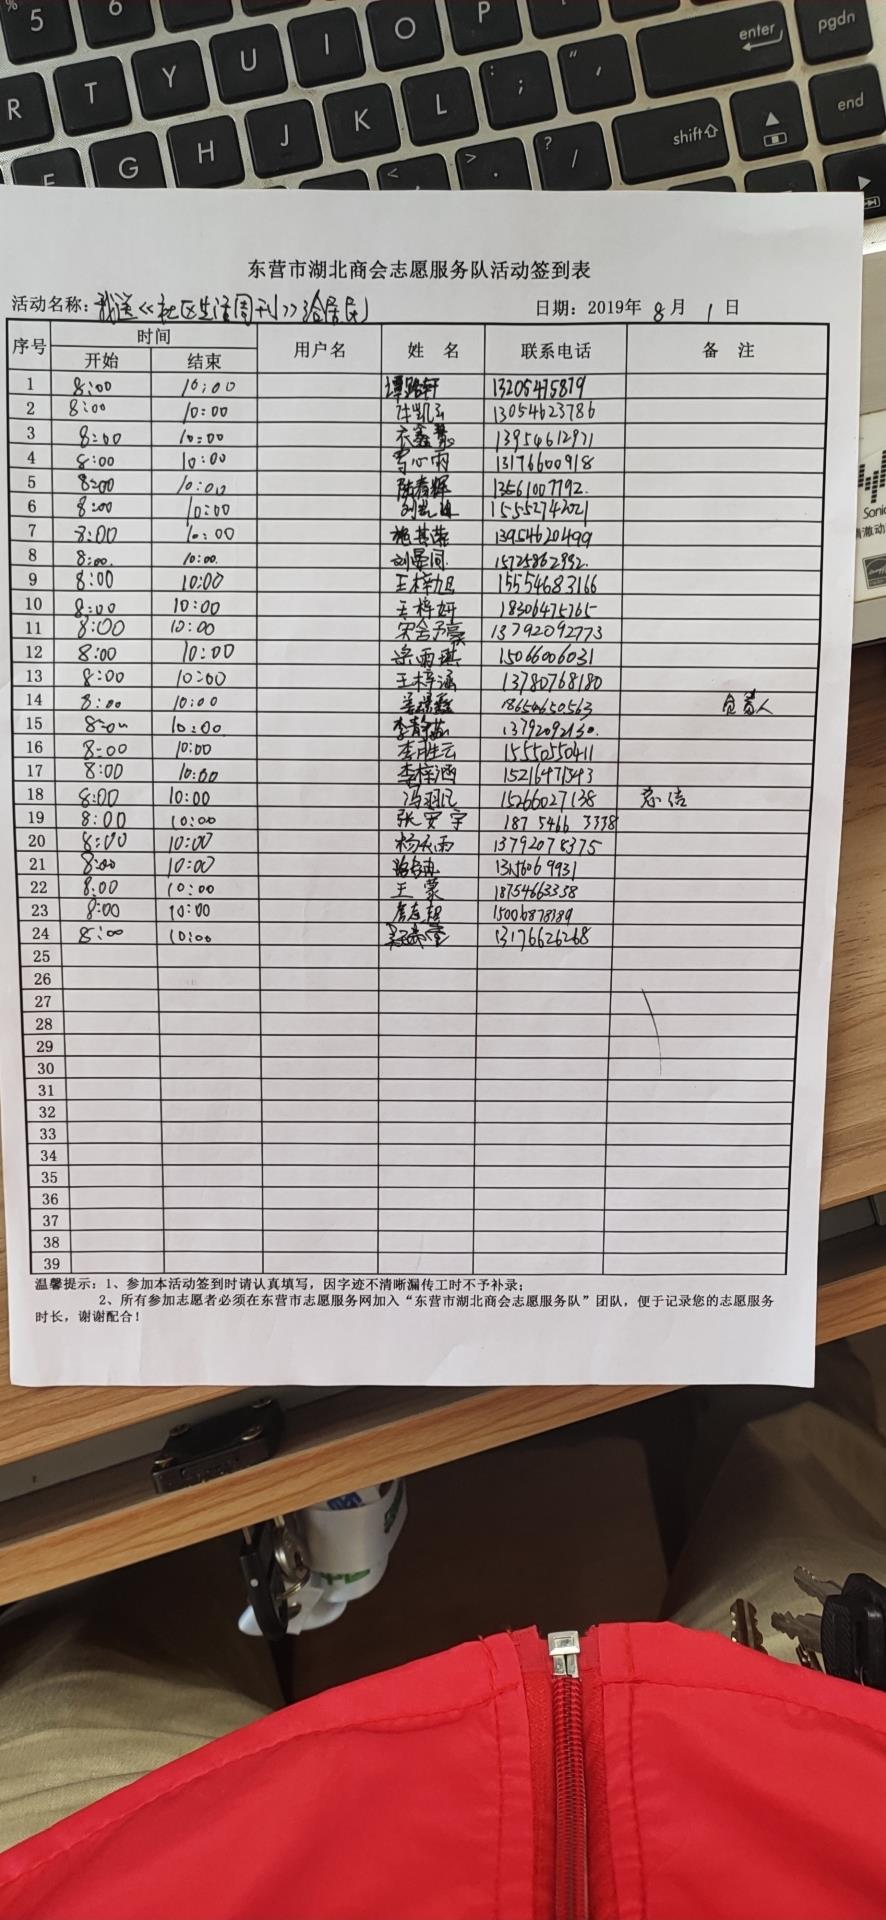 5 6
R T Y U I O P enter pgdn
G H J K L ; shift end
东营市湖北商会志愿服务队活动签到表
活动名称：我送《社区生活周刊》给居民 日期：2019年 8 月 1 日
序号 时间 用户名 姓 名 联系电话 备 注
开始 结束
1 8:00 10:00 13205475879
2 8:00 10:00 13054623786
3 8:00 10:00 13954612971
4 8:00 10:00 13176600918
5 8:00 10:00 13561007792.
6 8:00 10:00 15552742021
7 8:00 10:00 13954620499
8 8:00. 10:00. 15725862992.
9 8:00 10:00 王梓旭 15554683166
10 8:00 10:00 王梓妍 18306475765
11 8:00 10:00 13792092773
12 8:00 10:00 梁雨琪 15066006031
13 8:00 10:00 王梓涵 13780768180
14 8:00 10:00 18654650563 负责人
15 8:00 10:00 李静茹 13792092130.
16 8:00 10:00 李胜云 15550550411
17 8:00 10:00 李梓涵 15216471343
18 8:00 10:00 15266027138
19 8:00 10:00 张安宇 187 5466 3338
20 8:00 10:00 杨天雨 13792078375
21 8:00 10:00
22 8:00 10:00 王 蒙 18754663338
23 8:00 10:00 15006878189
24 8:00 10:00 13176626268
25
26
27
28
29
30
31
32
33
34
35
36
37
38
39
温馨提示：1、参加本活动签到时请认真填写，因字迹不清晰漏传工时不予补录；
2、所有参加志愿者必须在东营市志愿服务网加入“东营市湖北商会志愿服务队”团队，便于记录您的志愿服务
时长，谢谢配合！